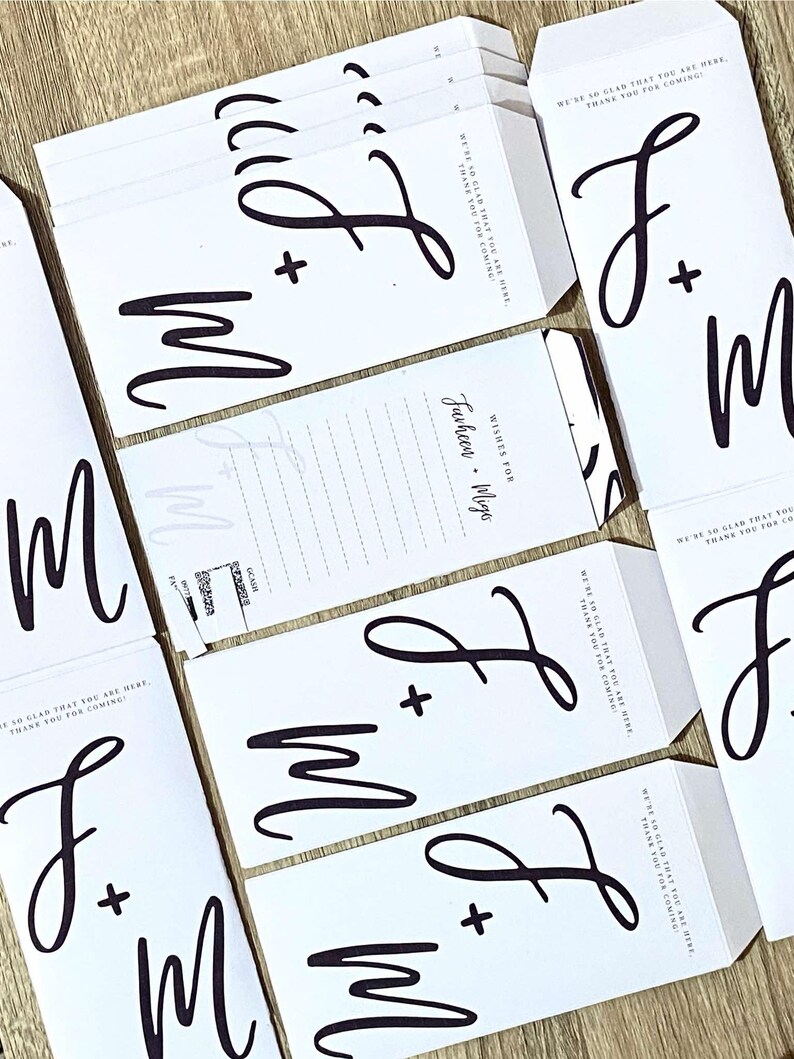 WE'RE SO GLAD THAT YOU ARE HERE,
THANK YOU FOR COMING!
F
+
M
WE'RE SO GLAD THAT YOU ARE HERE,
THANK YOU FOR COMING!
F
+
M
WISHES FOR
Favheen + Migo
F
+
M
GCASH
0977
M
WE'RE SO GLAD THAT YOU ARE HERE,
THANK YOU FOR COMING!
F
+
M
WE'RE SO GLAD THAT YOU
THANK YOU FOR
F
WE'RE SO GLAD THAT YOU ARE HERE,
THANK YOU FOR COMING!
F
+
M
SO GLAD THAT YOU ARE HERE,
THANK YOU FOR COMING!
F
+
M